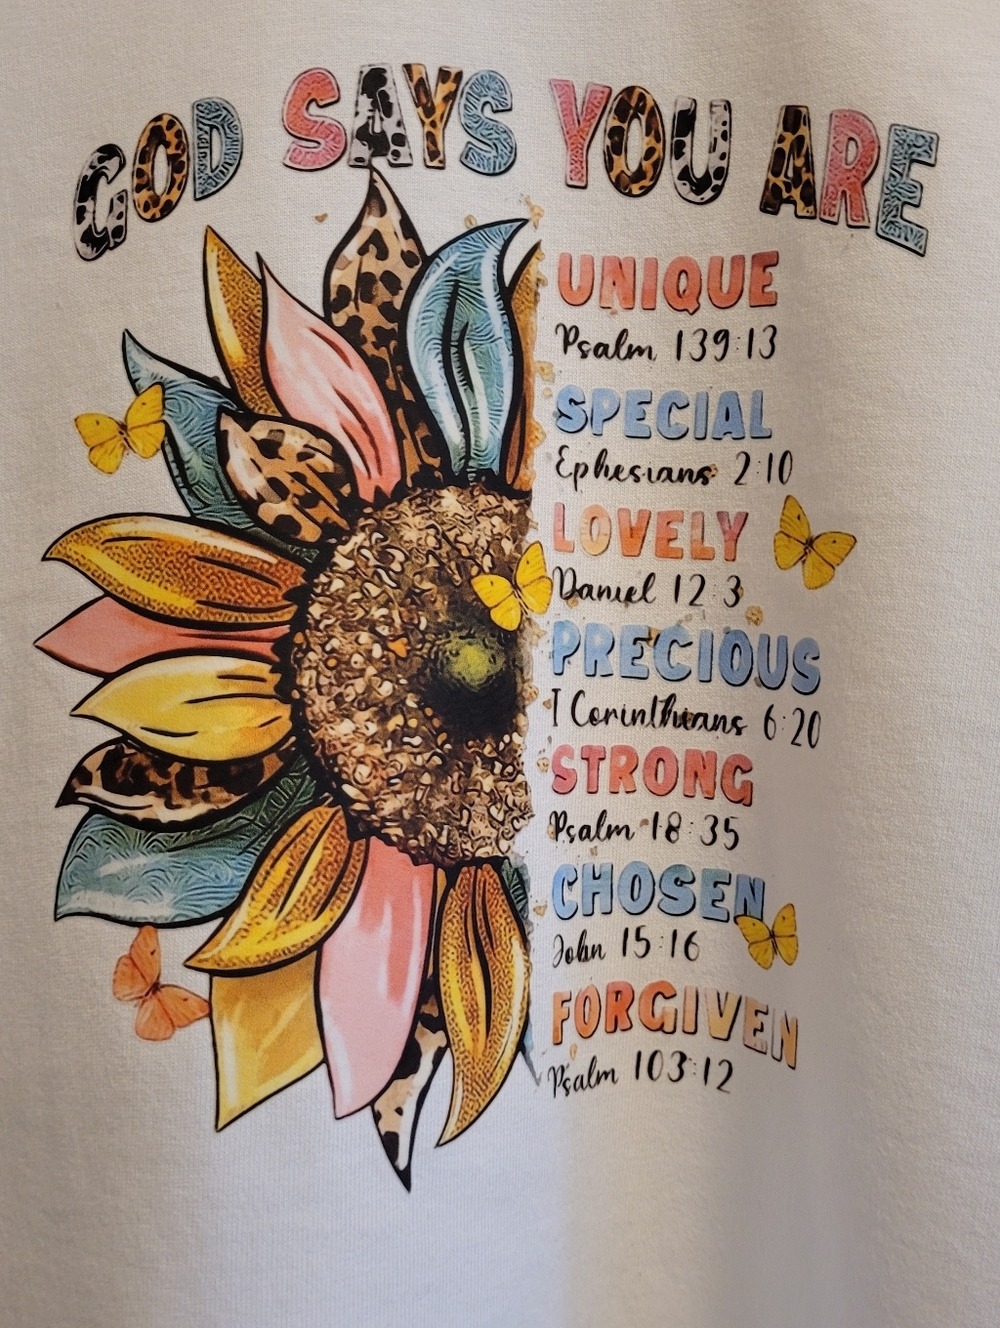 GOD SAYS YOU ARE
UNIQUE
Psalm 139:13
SPECIAL
Ephesians 2:10
LOVELY
Daniel 12:3
PRECIOUS
1 Corinthians 6:20
STRONG
Psalm 18:35
CHOSEN
John 15:16
FORGIVEN
Psalm 103:12